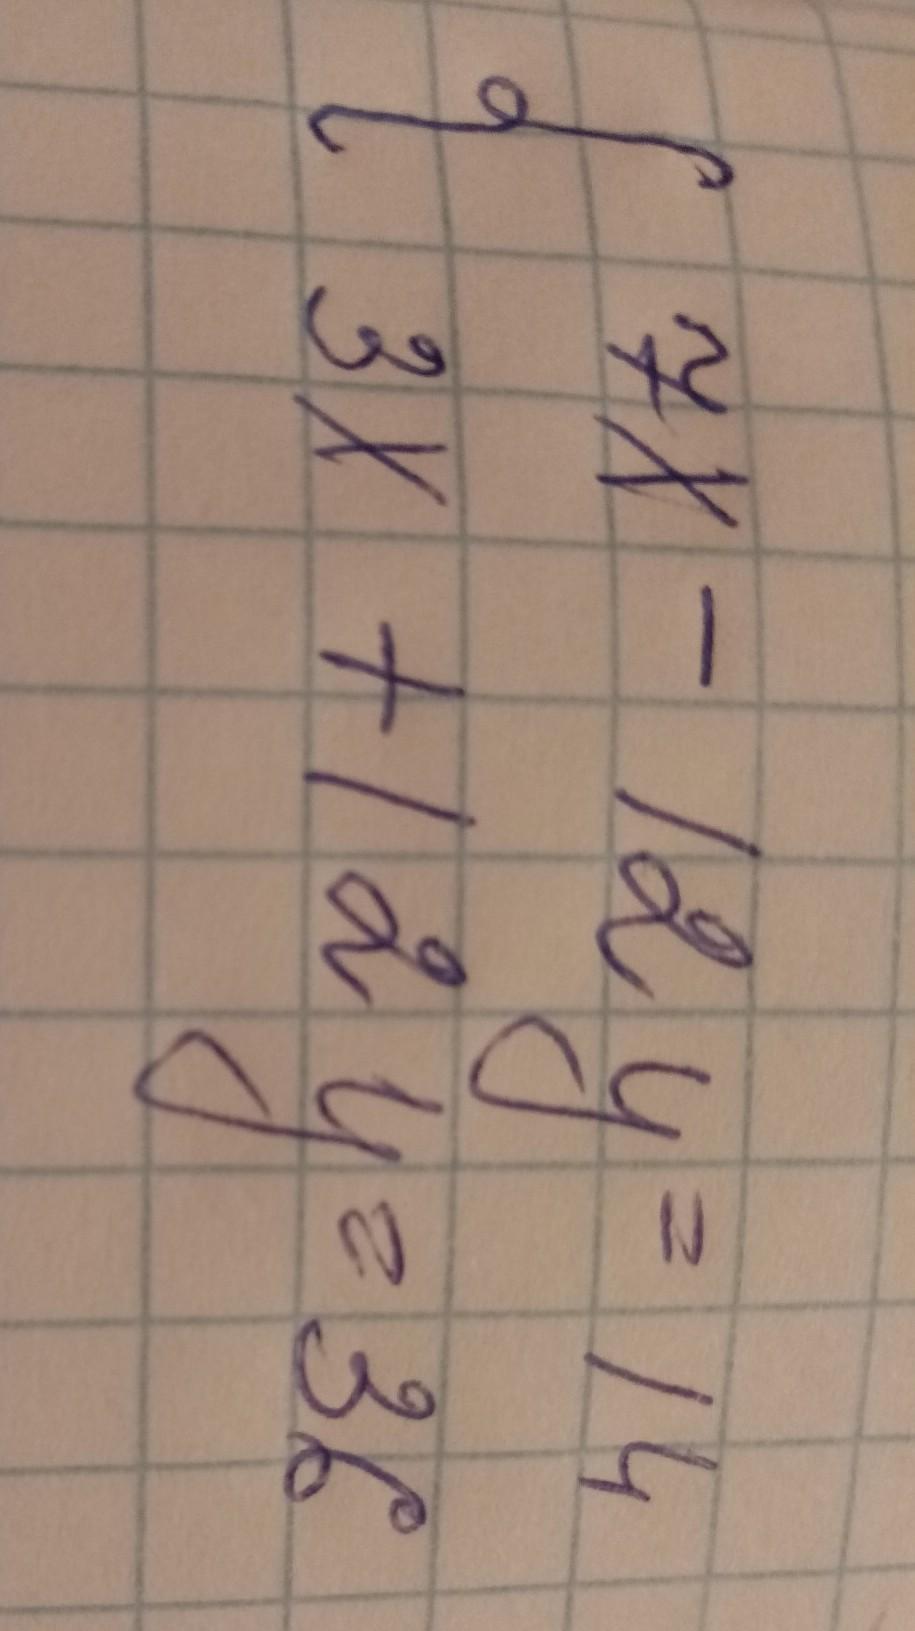 { 7x - 12y = 14
3x + 12y = 36